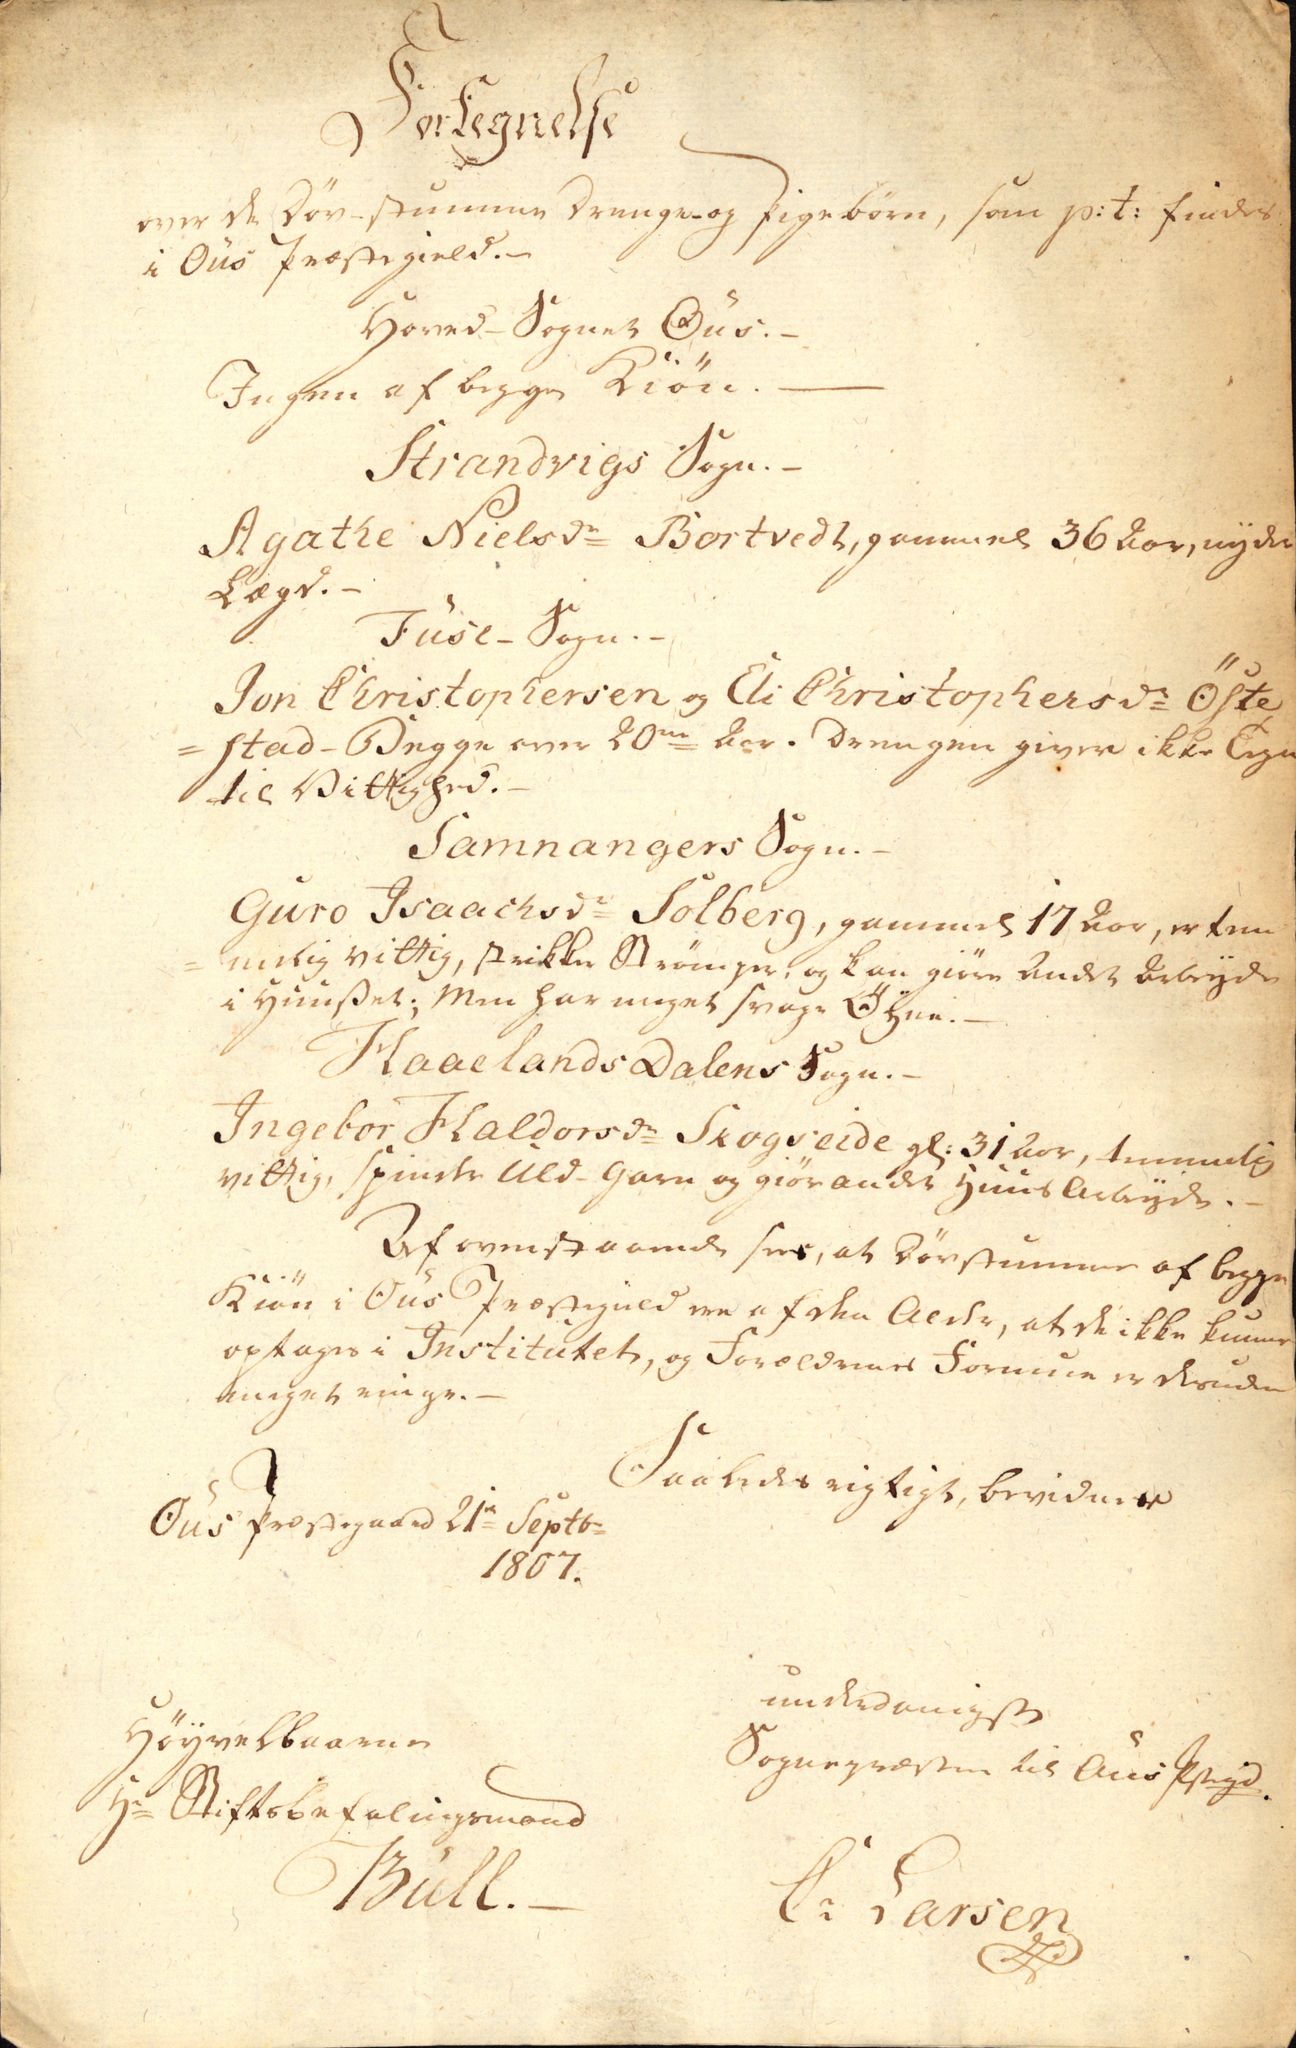 Fortegnelse
over de Döv-stumme Drenge- og Pigebörn, som p: t: findes
i Ous Præstegield. -
Hoved-Sognet Ous. -
Ingen af begge Kiön. -
Strandvigs Sogn. -
Agathe Nielsdr Bortvedt, gammel 36 Aar, nyder
Lægd. -
Fuse- Sogn. -
Jon Christophersen og Eli Christophersdr Öste
= stad - Begge over 20ve Aar. Drengen giver ikke Tegn
til Vittighed. -
Samnangers Sogn. -
Guro Isaachsdr Solberg, gammel 17 Aar, er tem
= melig vittig, strikker Strömper, og kan giöre andet Arbeyde
i Huuset; Men har meget svage Öyne. -
Haaelands Dalens Sogn. -
Ingebor Haldorsdr Skogseide gl: 31 Aar, temmelig
vittig, spinder Uld-Garn og giör andet Huus Arbeyde. -
Af ovenstaaende sees, at Dövstumme af begge
Kiön i Ous Præstegield ere af den Alder, at de ikke kunne
optages i Institutet, og Forældrenes Formue er desuden
meget ringe. -
Saaledes rigtigt, bevidner
Ous Præstegaard 21de Septbr
1807.
underdanigst
Sognepræsten til Ous Pstgd.
C: Larsen
Höyvelbaarne
Hr Stiftsbefalingsmand
Bull. -